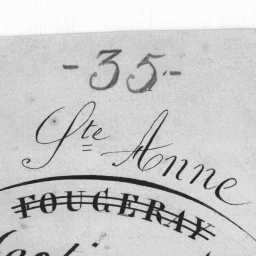 - 35 -
Ste Anne
FOUGERAY